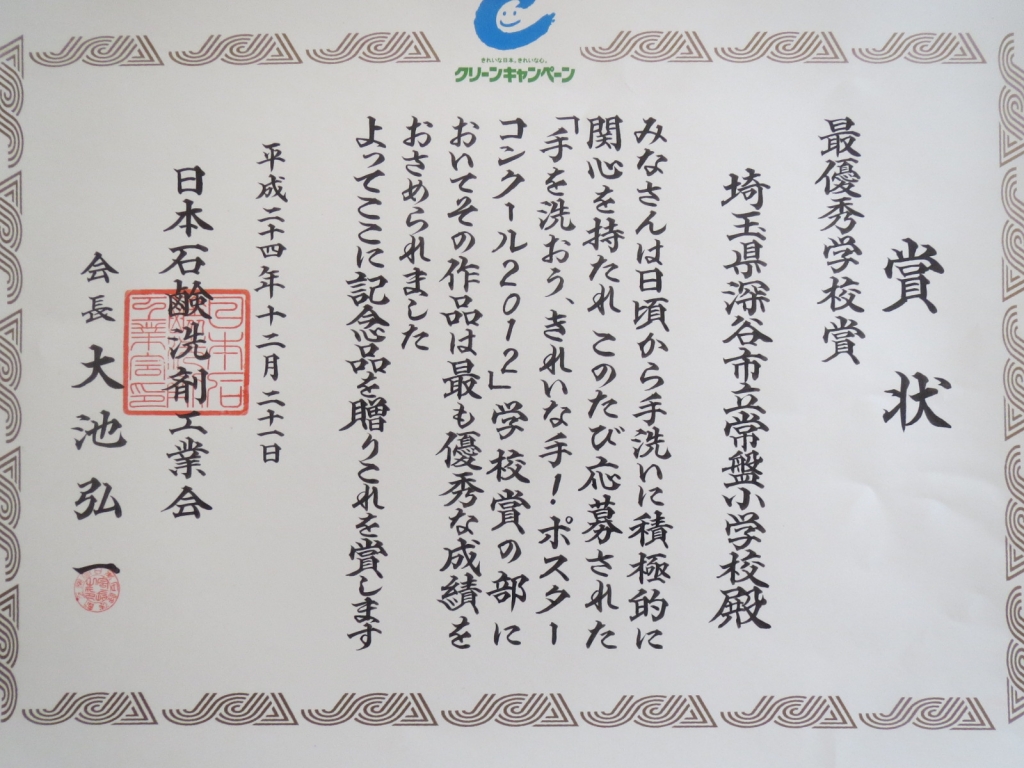 きれいな日本、きれいな心。
クリーンキャンペーン
賞状
最優秀学校賞
埼玉県深谷市立常盤小学校殿
みなさんは日頃から手洗いに積極的に
関心を持たれ このたび応募された
「手を洗おう、きれいな手！ポスター
コンクール2012」学校賞の部に
おいてその作品は最も優秀な成績を
おさめられました
よってここに記念品を贈りこれを賞します
平成二十四年十二月二十一日
日本石鹸洗剤工業会
会長 大池弘一